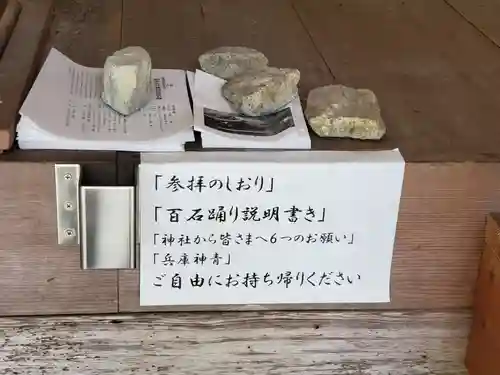 「参拝のしおり」
「百石踊り説明書き」
「神社から皆さまへ6つのお願い」
「兵庫神青」
ご自由にお持ち帰りください